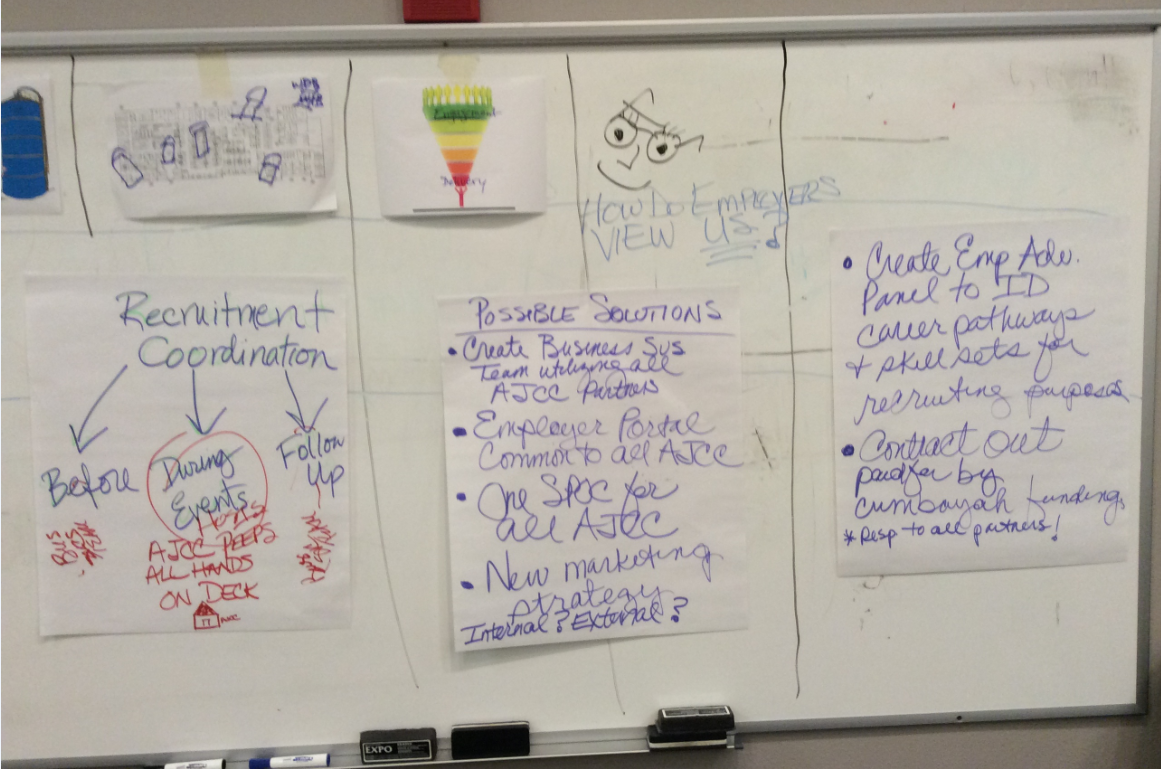 Employment
Delivery
HOW DO EMPLOYERS
VIEW US?
Recruitment
Coordination
Before
During
Events
Follow
Up
AJCC PEEPS
ALL HANDS
ON DECK
AJCC
POSSIBLE SOLUTIONS
• Create Business Svs
Team utilizing all
AJCC Partners
• Employer Portal
Common to all AJCC
• One SPOC for
all AJCC
• New marketing
strategy
Internal? External?
• Create Emp Adv.
Panel to ID
career pathways
+ skill sets for
recruiting purposes
• Contract out
paid for by
cumbayah fundings
* Resp to all partners!
EXPO